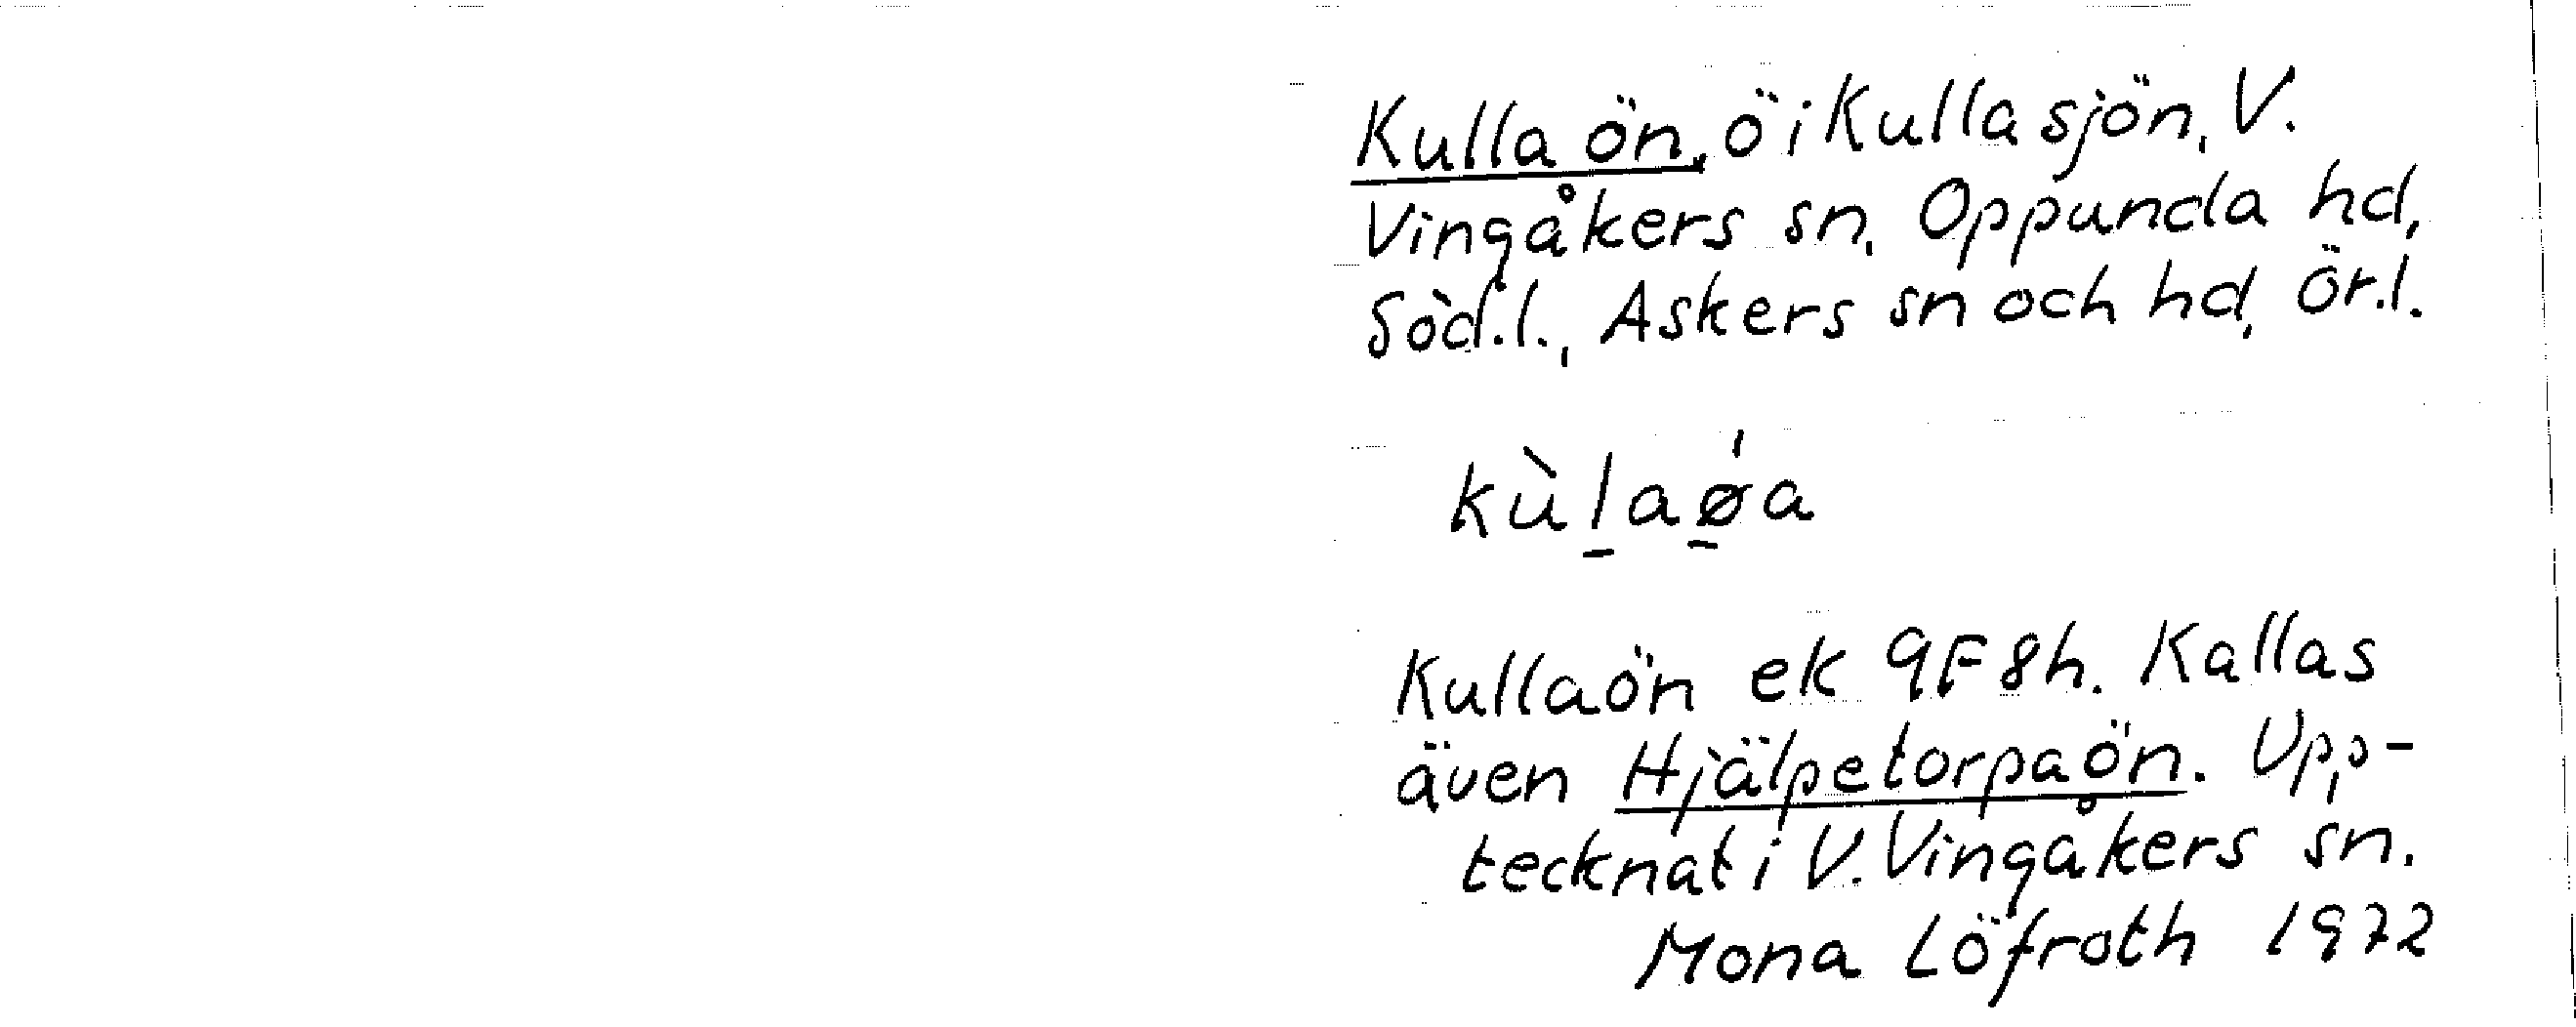 Kulla ön, ö i Kullasjön, V.
Vingåkers sn, Oppunda hd,
Söd.l., Askers sn och hd, Ör.l.
kùl̠aǿ̠a
Kullaön ek 9F8h. Kallas
även Hjälpetorpaön. Upp-
tecknat i V. Vingåkers sn.
Mona Löfroth 1972